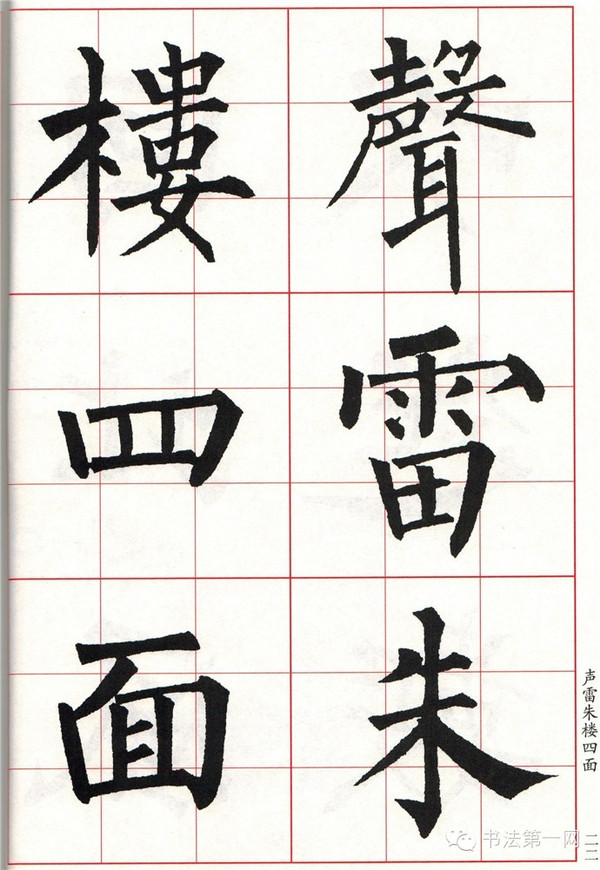 聲雷朱
樓四面
声雷朱楼四面
二二
书法第一网